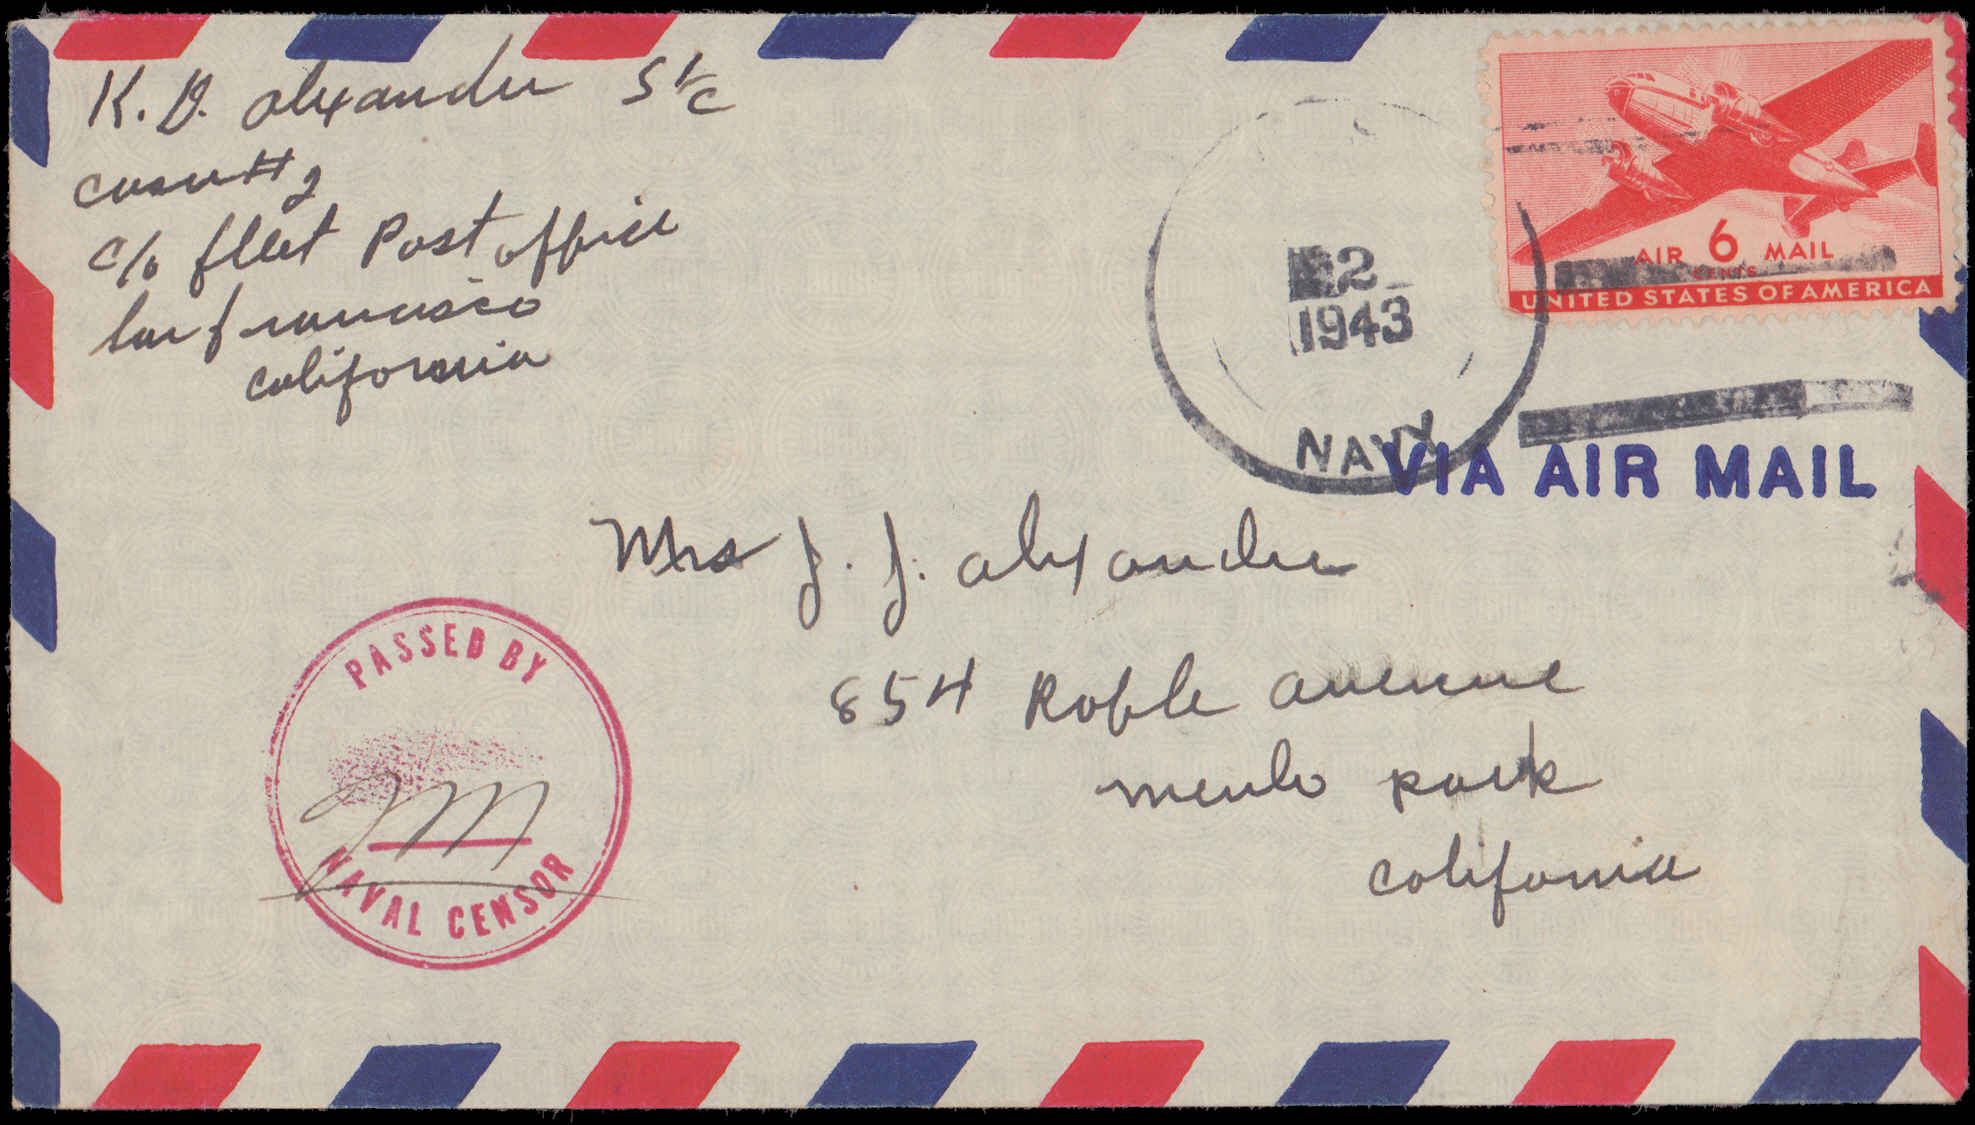 K. D. Alexander S 1/c
Casu #2
c/o Fleet Post Office
San Francisco
California
2
1943
NAVY
AIR 6 MAIL
CENTS
UNITED STATES OF AMERICA
VIA AIR MAIL
Mrs J. J. Alexander
854 Roble Avenue
Menlo Park
California
PASSED BY
NAVAL CENSOR